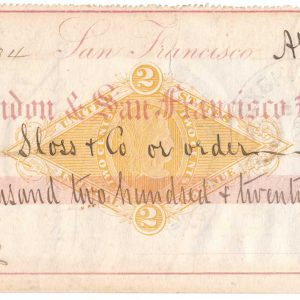 34 San Francisco
ndon & San Francisco
2
UNITED
Sloss & Co or order
usand two hundred & twenty
2